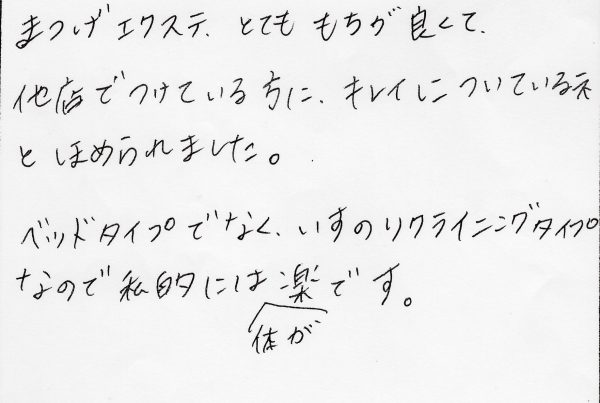 まつげエクステ、とても もちが良くて、
他店でつけている方に、キレイについているネ
とほめられました。
ベッドタイプでなく、いすのリクライニングタイプ
なので私的には楽です。
体が